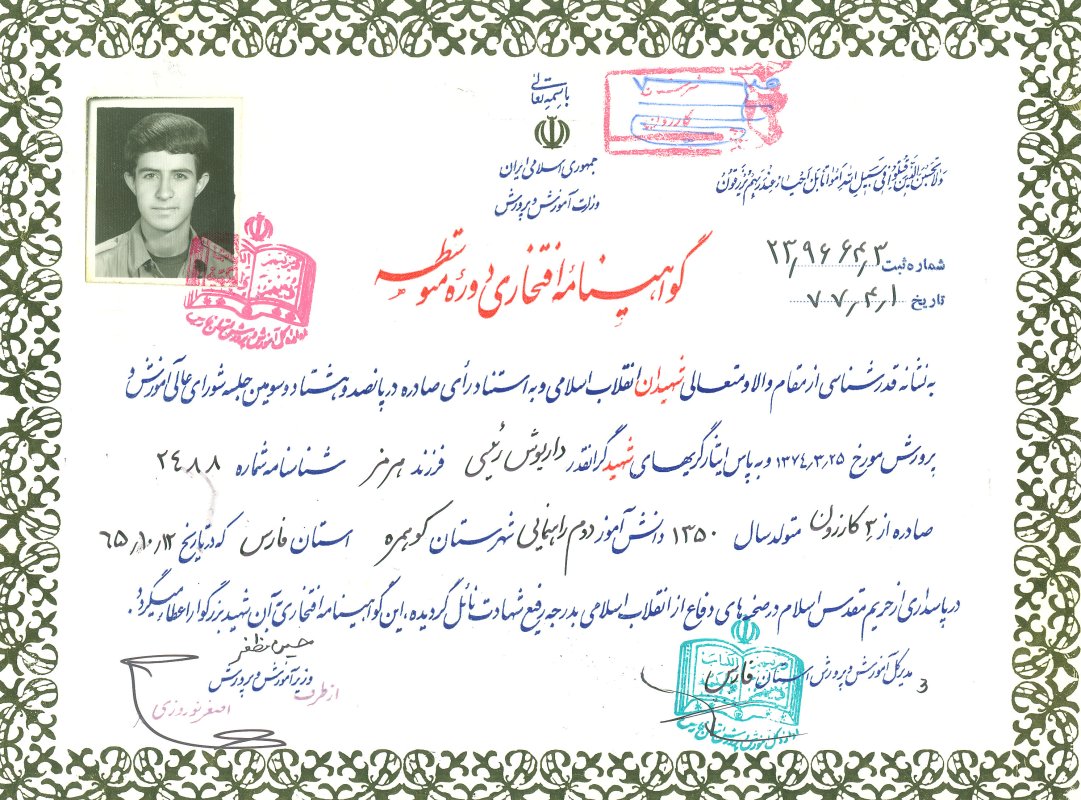 باسمه تعالی
جمهوری اسلامی ایران
وزارت آموزش و پرورش
کازرون
ولا تحسبن الذین قتلوا فی سبیل الله امواتا بل احیاء عند ربهم یرزقون
شماره ثبت ۲۳٫۹۶۶۴٫۳
تاریخ ۷۷٫۴٫۱
گواهینامهٔ افتخاری دورهٔ متوسطه
به نشانه قدرشناسی از مقام والا و متعالی شهیدان انقلاب اسلامی و به استناد رأی صادره در پانصد و هشتاد و سومین جلسه شورای عالی آموزش و
پرورش مورخ ۱۳۷۴٫۳٫۲۵ و به پاس ایثارگریهای شهید گرانقدر داریوش رئیسی فرزند هرمز شناسنامه شماره ۲۴۸۸
صادره از ۳ کازرون متولد سال ۱۳۵۰ دانش آموز دوم راهنمایی شهرستان کوهمره استان فارس که در تاریخ ۶۵٫۱۰٫۱۲
در پاسداری از حریم مقدس اسلام در صحنه های دفاع از انقلاب اسلامی بدرجه رفیع شهادت نائل گردیده، این گواهینامه افتخاری به آن شهید بزرگوار اعطاء میگردد.
حسین مظفر
وزیر آموزش و پرورش
از طرف
اصغر نوروزی
3 مدیر کل آموزش و پرورش استان فارس
اداره کل آموزش و پرورش استان فارس